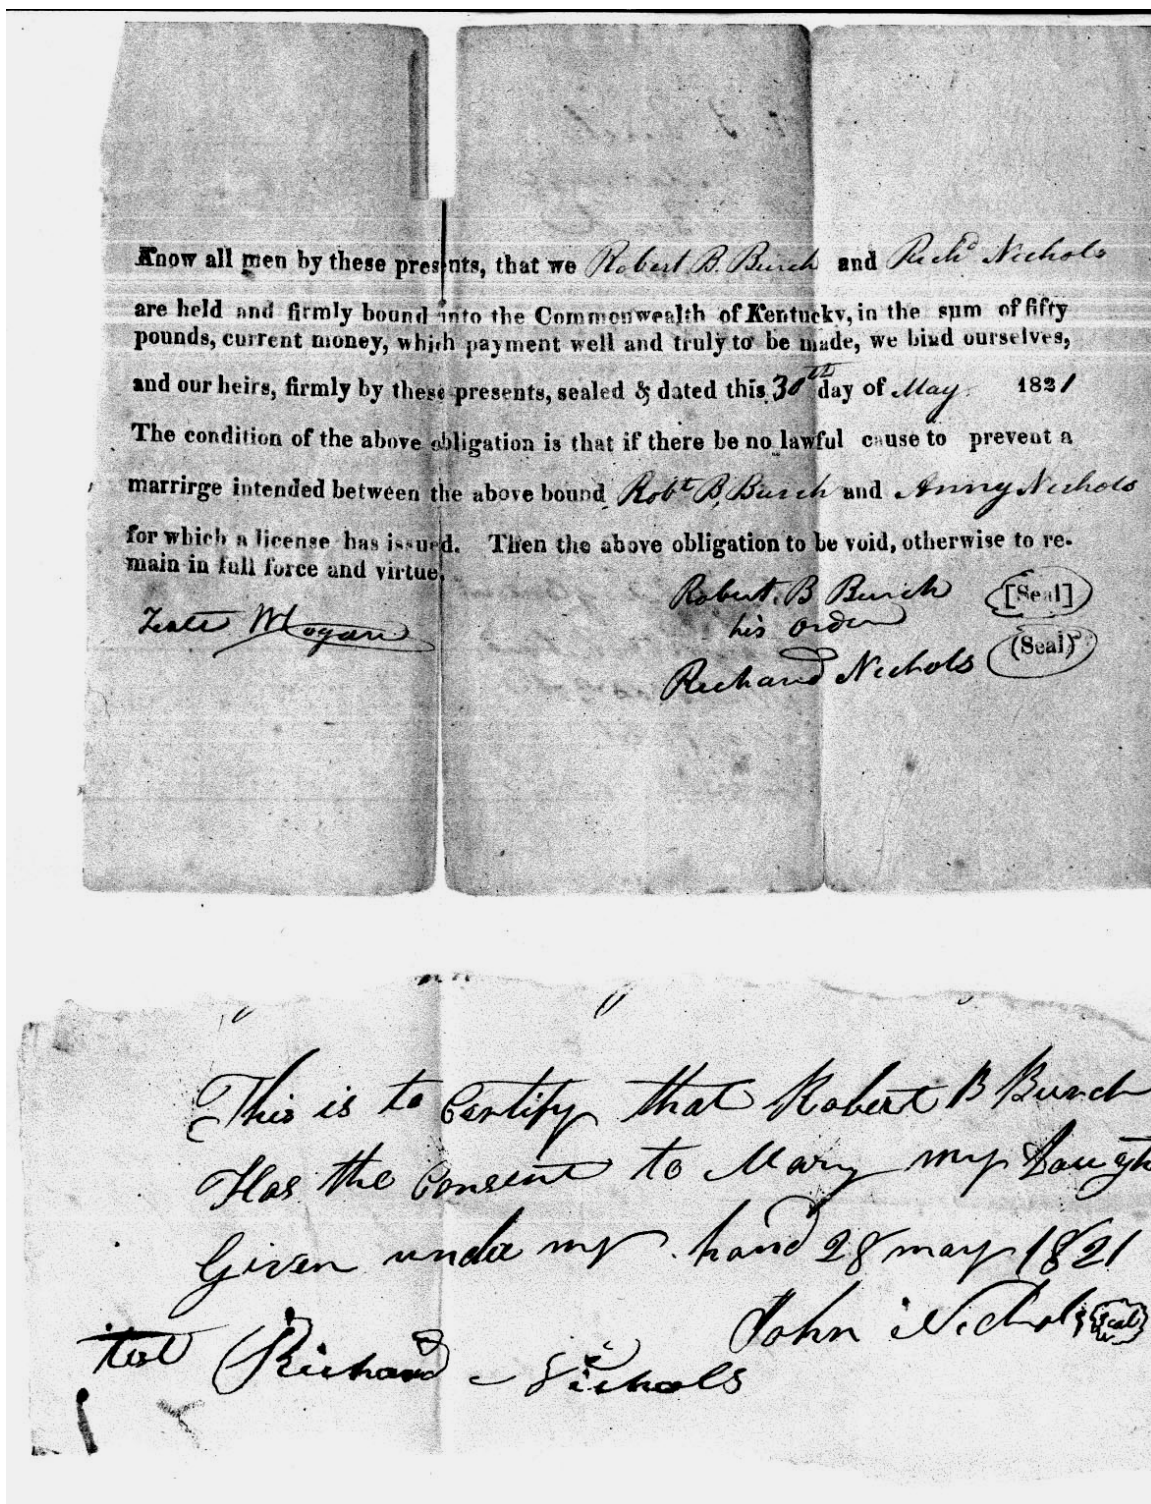 Know all men by these presents, that we Robert B. Burch and Richd Nichols
are held and firmly bound into the Commonwealth of Kentucky, in the sum of fifty
pounds, current money, which payment well and truly to be made, we bind ourselves,
and our heirs, firmly by these presents, sealed & dated this 30th day of May 1821
The condition of the above obligation is that if there be no lawful cause to prevent a
marrirge intended between the above bound Robt B. Burch and Anny Nichols
for which a license has issued. Then the above obligation to be void, otherwise to re-
main in full force and virtue.
Robert. B Burch [Seal]
his order
Teste W Logan
(Seal)
Richard Nichols
This is to Certify that Robert B Burch
Has the Consent to Mary my Daugh
Given under my hand 28 may 1821
John Nichols Seal
test Richard Nichols